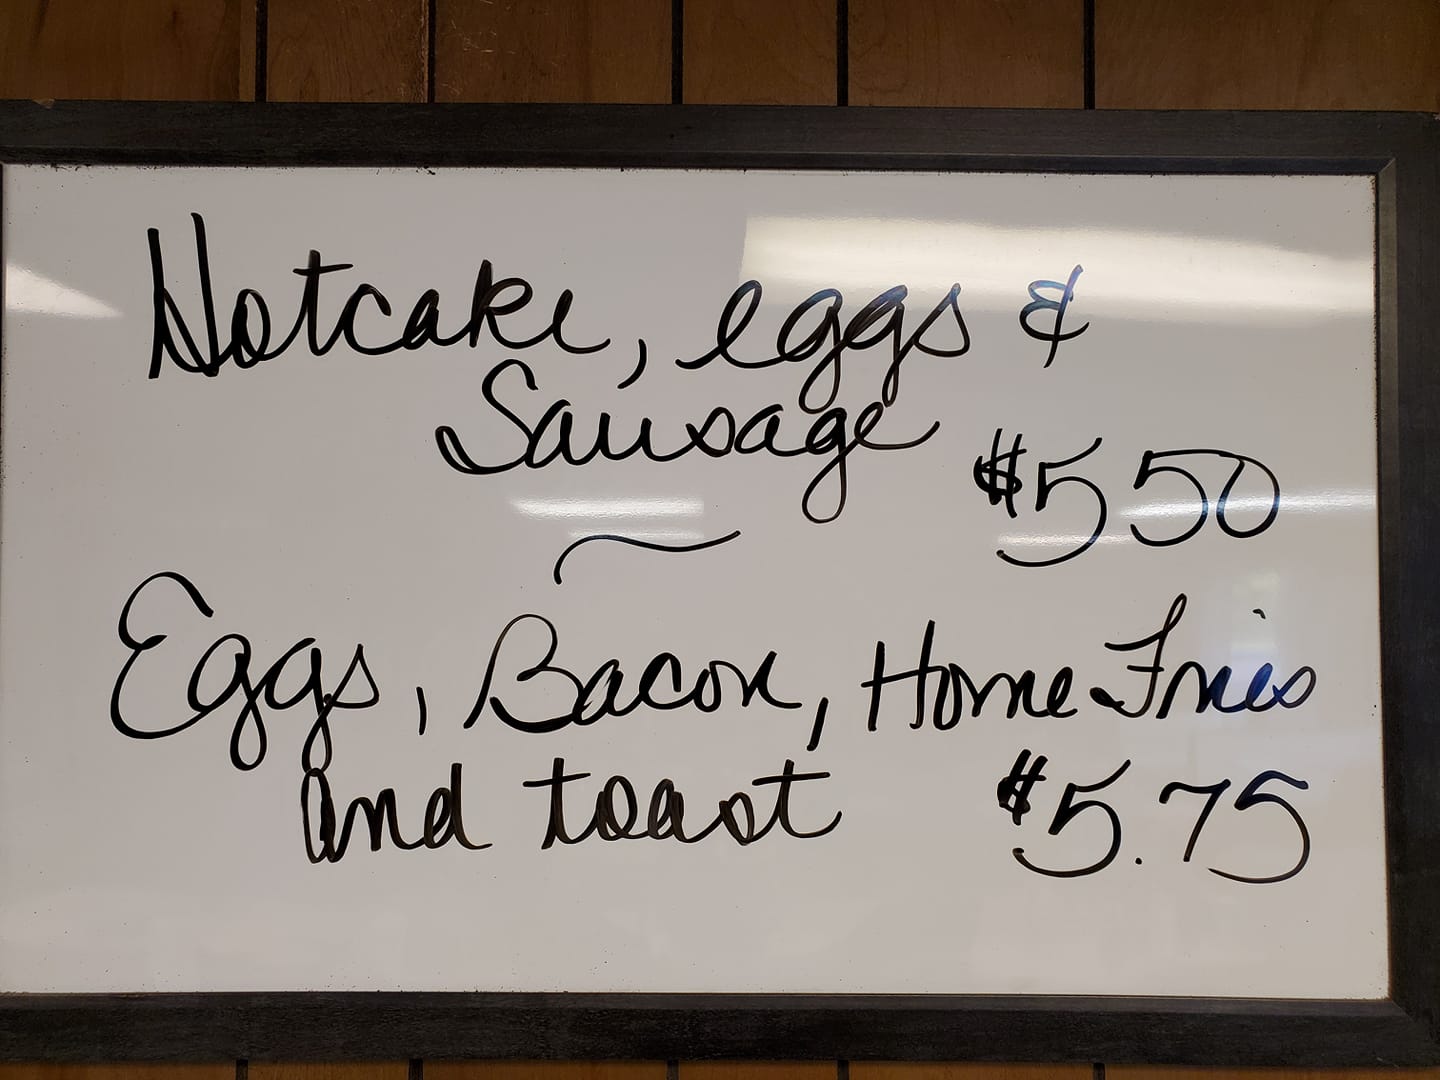 Hotcake, eggs &
Sausage
$5 50
Eggs, Bacon, Home Fries
and toast $5.75